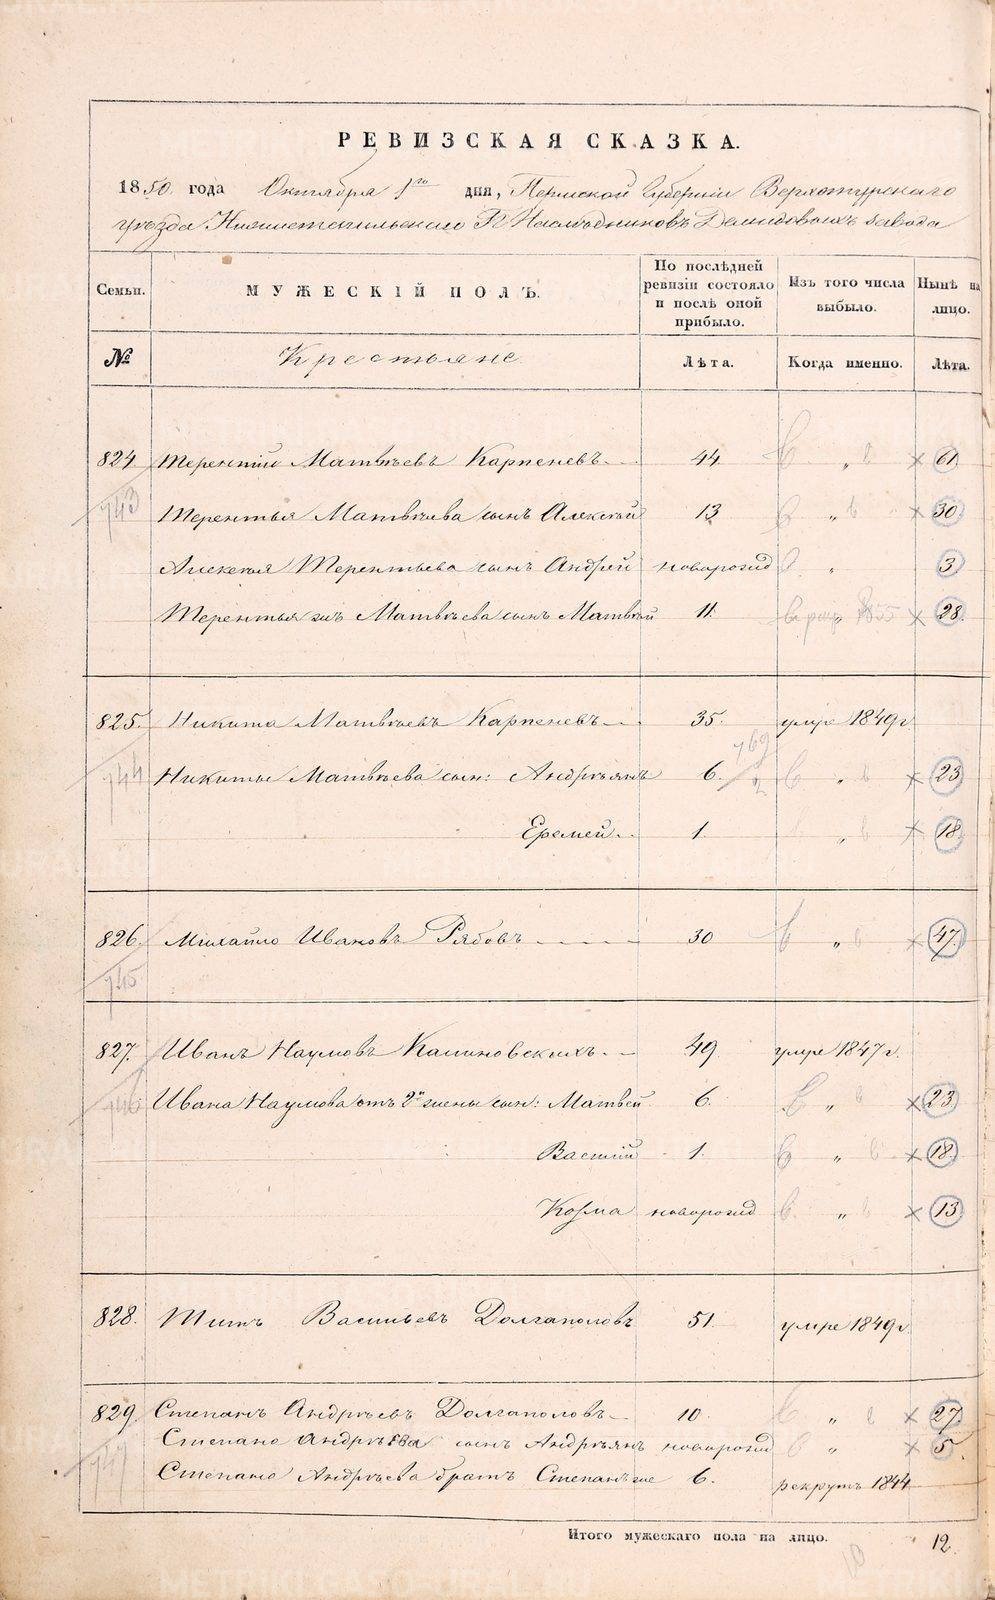 РЕВИЗСКАЯ СКАЗКА.
1850 года Октября 1го дня, Пермской Губернии Верхотурскаго
уѣзда Нижнетагильскаго Наслѣдниковъ Демидовыхъ завода
Семьи. МУЖЕСКІЙ ПОЛЪ. По послѣдней ревизіи состояло и послѣ оной прибыло. Изъ того числа выбыло. Нынѣ на лицо.
№ Крестьяне Лѣта. Когда именно. Лѣта.
824 Терентій Матвѣевъ Карпеневъ 44 „ 61
743 Терентья Матвѣева сынъ Алексѣй 13 „ 30
Алексѣя Терентьева сынъ Андрей новорожд „ 3
Терентья Матвѣева сынъ Матвѣй 11. „ 1855 28.
825. Никита Матвѣевъ Карпеневъ 35. умре 1849 г
744 Никиты Матвѣева сын: Андреянъ 6. „ 23
Еремей 1. „ 18
826. Михайло Ивановъ Рябовъ 30 „ 47.
745
827. Иванъ Наумовъ Калиновскихъ 49 умре 1847 г.
746 Ивана Наумова отъ 2й жены сын: Матвей 6. „ 23
Василій 1. „ 18.
Козма новорожд „ 13
828. Титъ Васильевъ Долгаполовъ 51 умре 1849 г.
829. Степанъ Андреевъ Долгаполовъ 10. „ 27
747 Степана Андреева сынъ Андреянъ новорожд „ 5.
Степана Андреева братъ Степанъ же 6. рекрутъ 1844
Итого мужескаго пола на лицо. 12.
10
METRIKI.GASO-URAL.RU